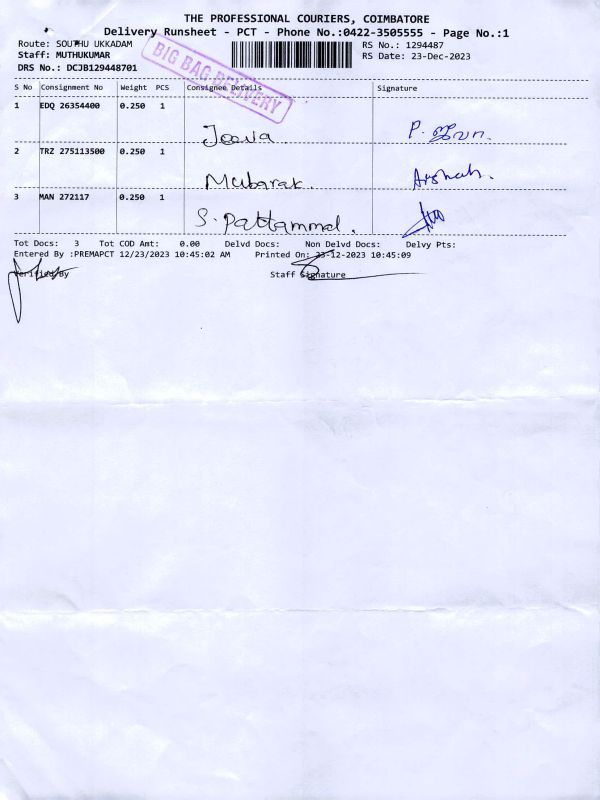 THE PROFESSIONAL COURIERS, COIMBATORE
Delivery Runsheet - PCT - Phone No.:0422-3505555 - Page No.:1
Route: SOUTHU UKKADAM
RS No.: 1294487
Staff: MUTHUKUMAR
RS Date: 23-Dec-2023
DRS No.: DCJB129448701
BIG BAG DELIVERY
S No Consignment No Weight PCS Consignee Details Signature
1 EDQ 26354400 0.250 1
Jeeva
2 TRZ 275113500 0.250 1
Mubarak.
3 MAN 272117 0.250 1
S. Pattammal.
Tot Docs: 3 Tot COD Amt: 0.00 Delvd Docs: Non Delvd Docs: Delvy Pts:
Entered By :PREMAPCT 12/23/2023 10:45:02 AM Printed On: 23-12-2023 10:45:09
Verified By Staff Signature